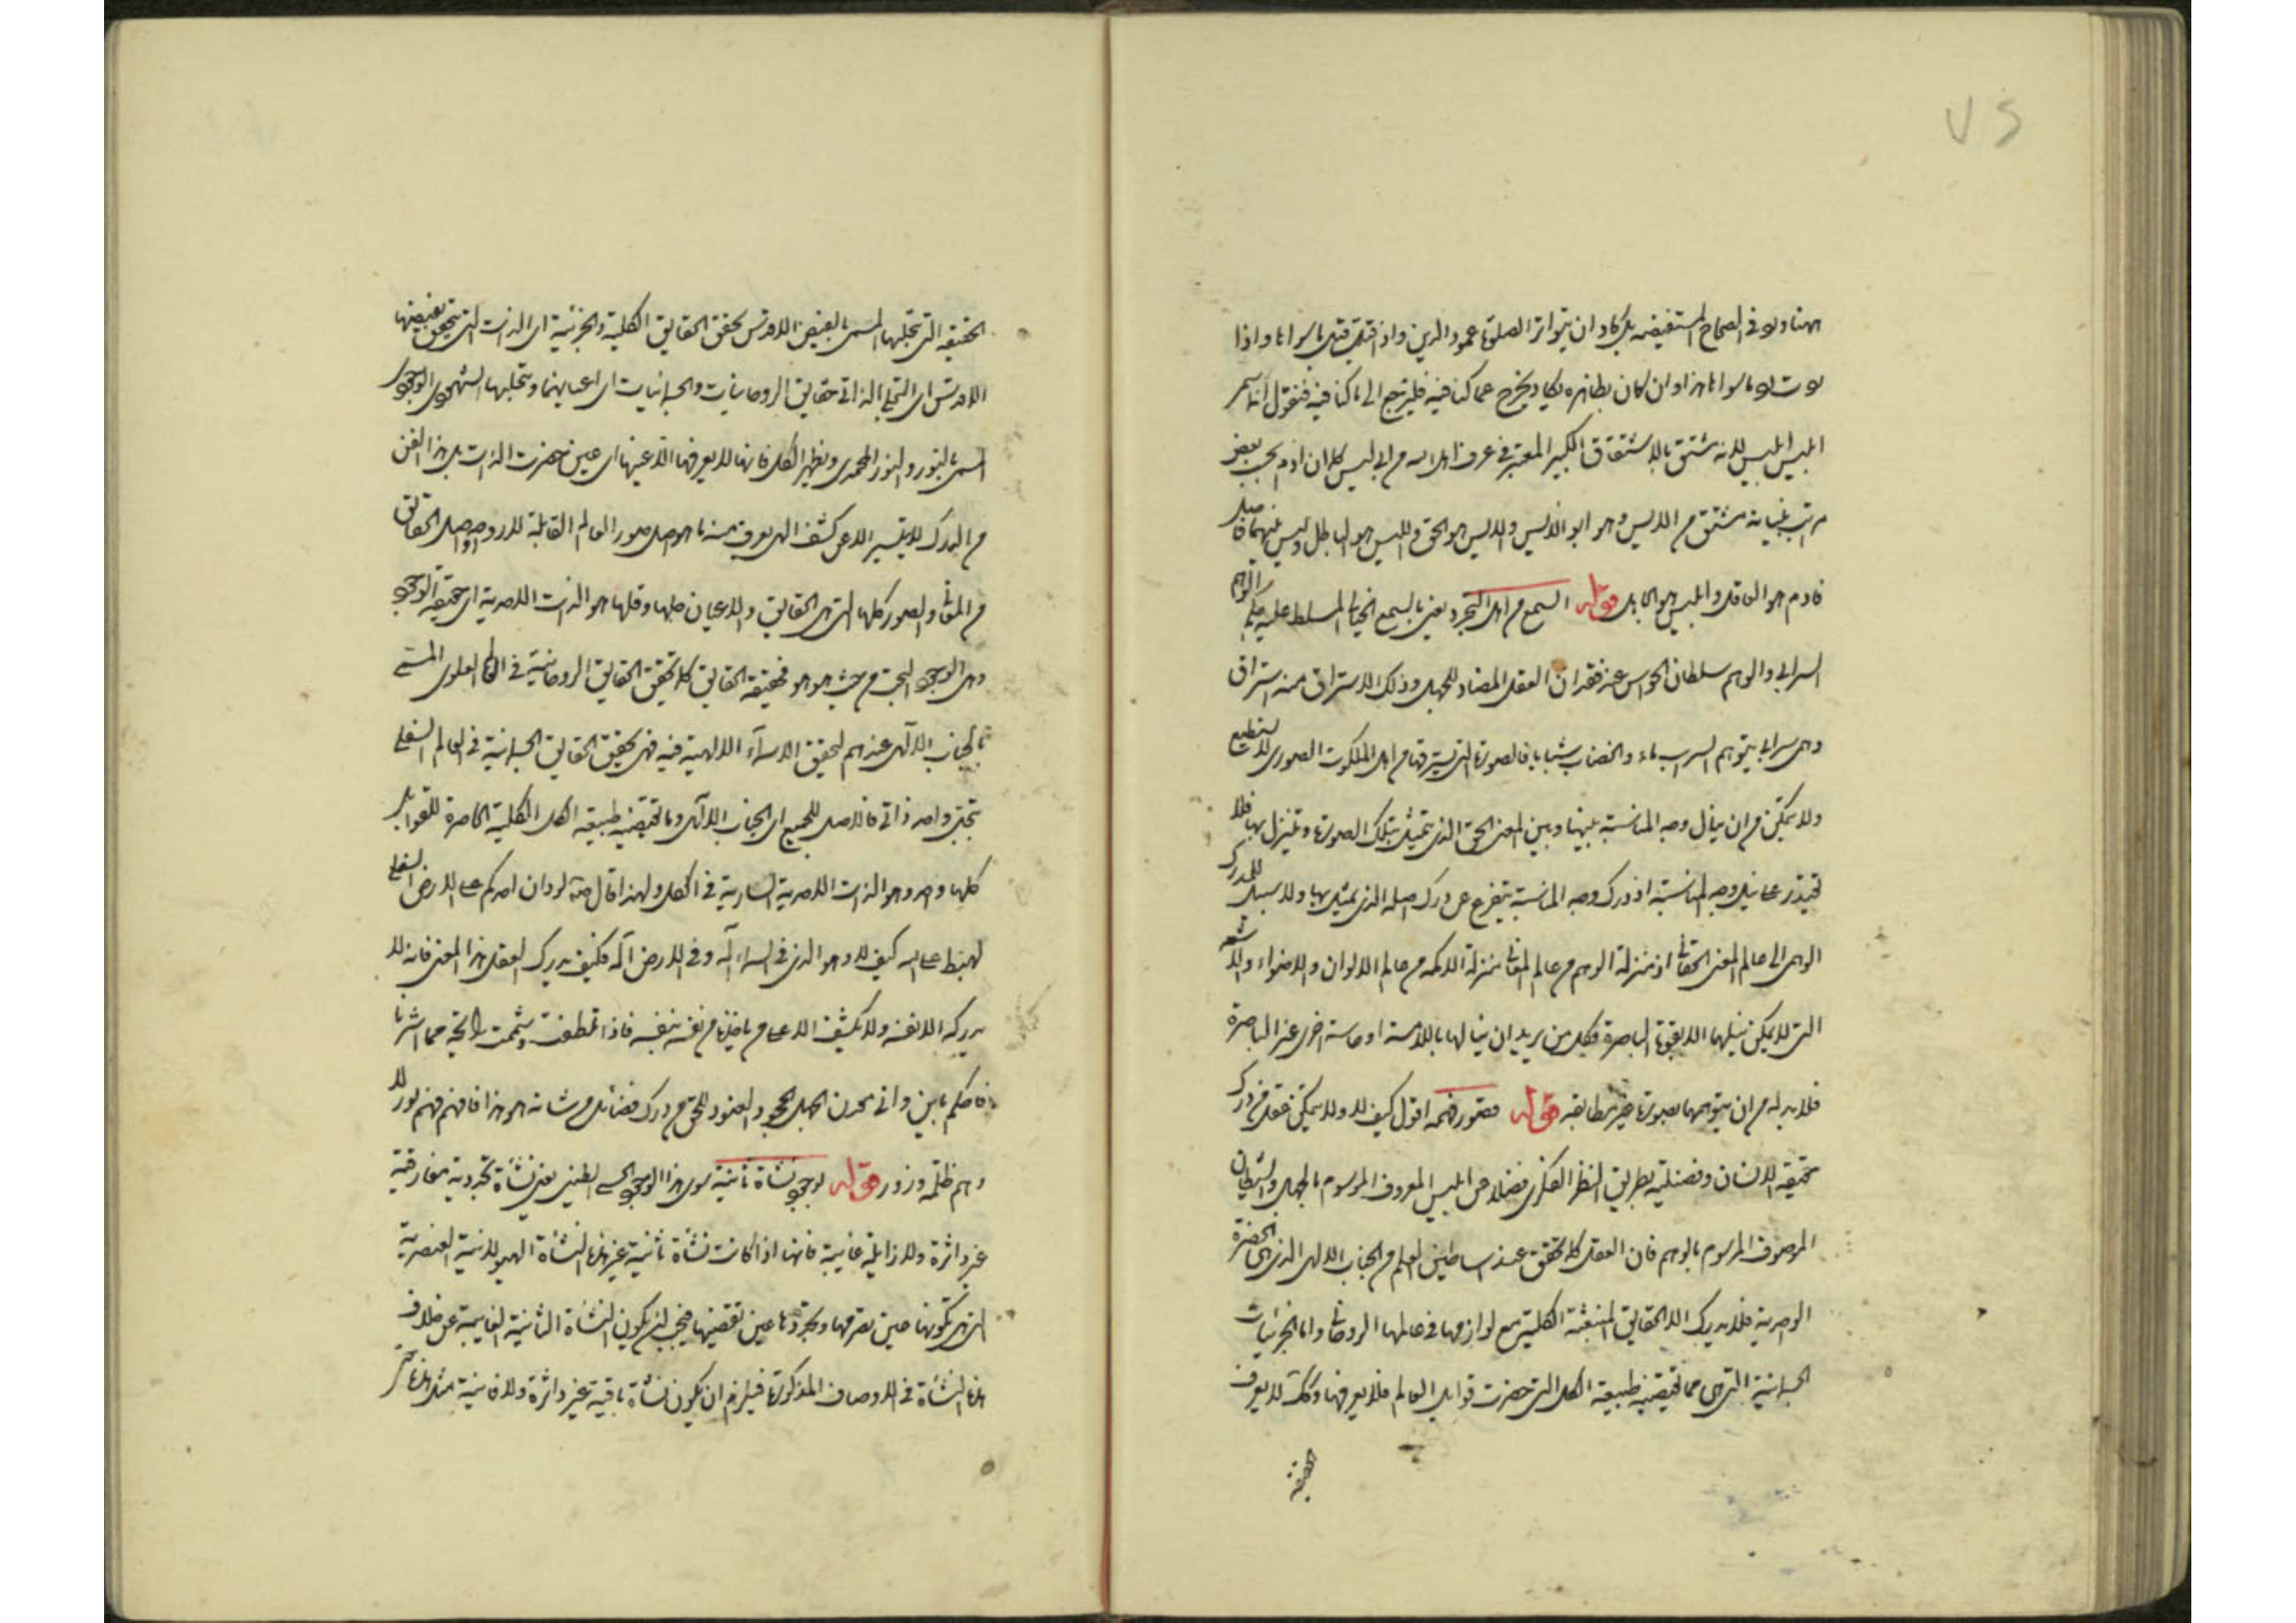 ٧٥
هنا ورد في الصحاح المستفيضة بل كاد ان يتواتر الصلوة عمود الدين واذا قبلت قبل ما سواها واذا
ردت رد ما سواها هذا وان كان بظاهره يكاد يخرج عما كنا فيه فليرجع الى ما كنا فيه فنقول انه اسم
ابليس ابليس لانه مشتق بالاشتقاق الكبير المعتبر في عرف اهل الله من ابي ليس كلا ان ادم بحسب بعض
مراتب مشتق من الايس وهو ابو الايس والايس هو الحق والليس هو الباطل وليس بينهما فاصل
فادم هو العاقل وابليس هو الجاهل قوله السمع من اهل التجرد يعني بالسمع الخيال المسلط عليه حكم الوهم
السرابي والوهم سلطان الحواس عند فقدان العقل المضاد للجهل وذلك الاستراق منه استراق
وهمي سرابي يتوهم السراب ماء والخضاب شبابا فالصورة التي يسترقها من اهل الملكوت الصوري لا يستطيع
ولا يتمكن من ان ينال وجه المناسبة بينها وبين المعنى الحق الذي يتمثل بتلك الصورة ويتنزل بها فلا
يقتدر على نيل وجه المناسبة اذ درك وجه المناسبة يتفرع عن درك اصله الذي يمثل بها ولا سبيل للمدرك
الوهمي الى عالم المعنى الحقاني اذ منزلة الوهم من عالم المعاني منزلة الاكمه من عالم الالوان والاضواء والاشعة
التي لا يمكن نيلها الا بقوة الباصرة فكل من يريد ان ينالها باللامسة او حاسة اخرى غير الباصرة
فلا بد له من ان يتوهمها بصورة غير مطابقة قوله قصور فهمه اقول كيف لا ولا يتمكن عقل من درك
حقيقة الانسان وفضيلته بطريق النظر الفكري فضلا عن ابليس المعروف الموسوم بالجهل والشيطان
الموصوف المرسوم بالوهم فان العقل كما تحقق عند اساطين العلم من الجناب الالهي الذي هي الحضرة
الوحدية فلا يدرك الا الحقايق المنبعثة الكلية مع لوازمها في عالمها الروحاني واما الجزئيات
الجسمانية التي هي مما تقتضيه طبيعة الكل التي حصرت قوابل العالم فلا يعرفها وكذلك لا يعرف
الحقيقة
الحقيقة التي بتجليها المسمى بالفيض الاقدس تحقق الحقايق الكلية والجزئية اي الذات التي يتحقق بفيضها
الاقدس اي التجلي الذاتي حقايق الروحانيات والجسمانيات اي اعيانهما وبتجليها الشهودي الوجودي
المسمى بالنور والنور المحمدي ويظهر الكل فانها لا يعرفها الا عينها اي عين حضرت الذات بل هذا الفن
من المدرك لا يتيسر الا عن كشف الهي يعرف منه ما هو اصل صور العالم القابلة لارواحه اصل الحقايق
من المعاني والصور كلها التي هي الحقايق والاعيان جلها وقلها هو الذات الاحدية اي حقيقة الوجود
وهي الوجود البحت من حيث هو هو فحقيقة الحقايق كما تحقق الحقايق الروحانية في العالم العلوي المسمى
بالجناب الالهي عندهم لتحقق الاسماء الالهية فيه فهي تحقق الحقايق الجسمانية في العالم السفلي
بتجلي واحد ذاتي فالاصل للجميع اي الجناب الالهي وما تقتضيه طبيعة الكل الكلية الحاصرة للقوابل
كلها واحد وهو الذات الاحدية السارية في الكل ولهذا قال صلى الله عليه وآله لو دلى احدكم على الارض السفلى
لهبط على الله كيف لا وهو الذي في السماء آله وفي الارض آله فكيف يدرك العقل هذا المعنى فانه لا
يدركه الا نفسه ولا يكشف الا على من ياخذها من نفسه بنفسه فاذا تلطفت وشممت رائحة مما اشرنا
فاحكم باين واني معدن الجهل الجحود والعنود للحق من درك فضائل من شانه هو هذا فافهم فهم نور لا
وهم ظلمة وزور قوله لوجود نشأة ثانية سوى هذا الوجود الحسي الطيني يعني نشأة تجردية مفارقية
غير داثرة ولا زايلة فانية فانها اذا كانت نشأة ثانية غير هذه النشأة الهيولانية العنصرية
التي هي تكونها عين تصرمها وتجددها عين تقضيها فيجب ان يكون النشأة الثانية الغايبة عن خلاف
هذه النشأة في الاوصاف المذكورة فيلزم ان يكون نشأة باقية غير داثرة ولا فانية مثل هذه